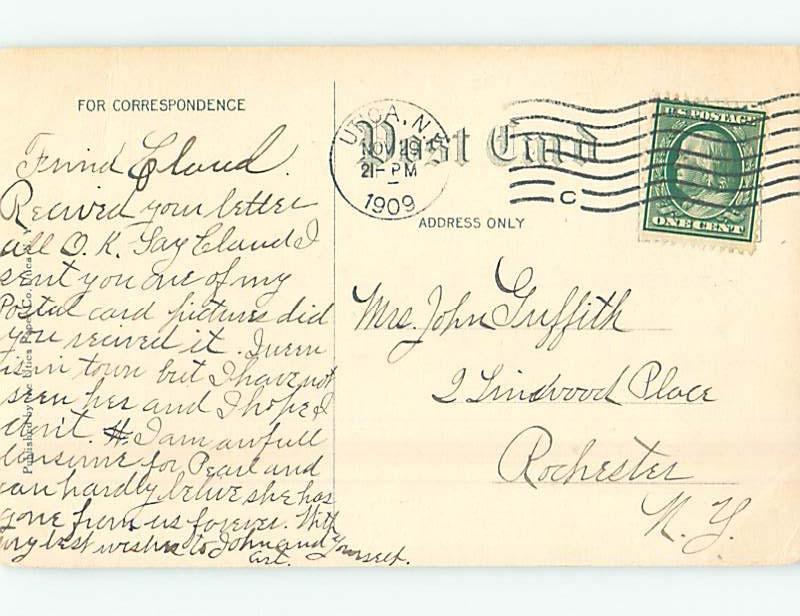 FOR CORRESPONDENCE
Frind Claud.
Recived your letter
all O.K. Say Claud I
sent you one of my
Postal card pictures did
you recived it.
is in town but I have not
seen her and I hope I
don't. I am awfull
lonsume for Pearl and
can hardly belive she has
gone from us forever. With
very best wishes to John and yourself.
Art.
Published by the Utica Paper Co. Utica
UTICA, N.Y.
NOV 19
21-PM
1909
C
Post Card
ADDRESS ONLY
U.S. POSTAGE
ONE CENT
Mrs. John Griffith
2 Lindwood Place
Rochester
N.Y.